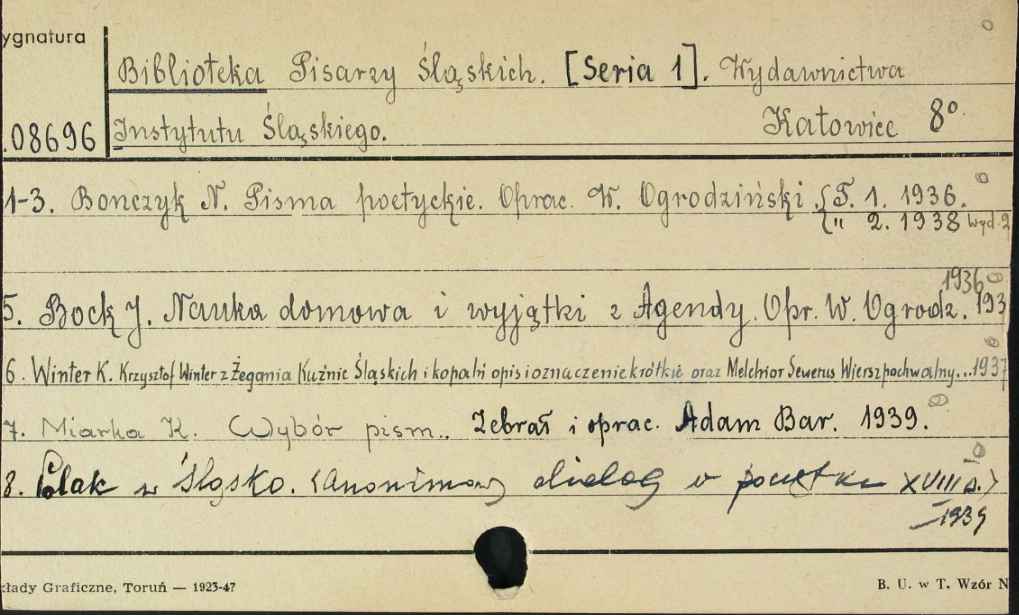 ygnatura
Biblioteka Pisarzy Śląskich. [Seria 1]. Wydawnictwa
.08696 Instytutu Śląskiego. Katowice 8°
1-3. Bonczyk N. Pisma poetyckie. Oprac. W. Ogrodziński. { T. 1. 1936.
{ " 2. 1938 wyd. 2
1936
5. Bock J. Nauka domowa i wyjątki z Agendy. Opr. W. Ogrodz. 193
6. Winter K. Krzysztof Winter z Żegania Kuźnic Śląskich i kopalń opis i oznaczenie krótkie oraz Melchior Sewerus Wiersz pochwalny... 1937
7. Miarka K. Wybór pism.. Zebrał i oprac. Adam Bar. 1939.
8. Polak w Śląsko. (Anonimowy dialog z początku XVIII w.)
1939
kłady Graficzne, Toruń — 1923-47 B. U. w T. Wzór N